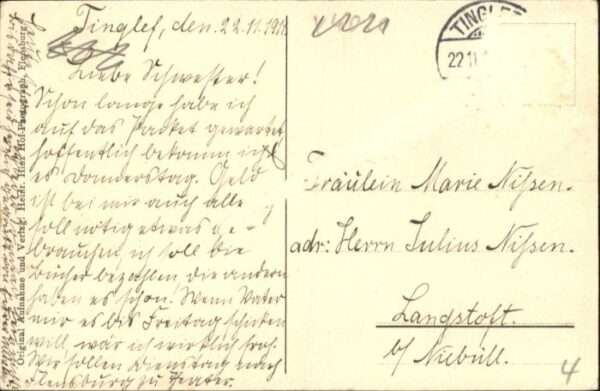 Tinglef, den 22.11.191
Liebe Schwester!
Schon lange habe ich
auf das Packet gewartet
hoffentlich bekomm ich
es Donnerstag. Geld
ist bei mir auch alle
soll nötig etwas ge-
brauchen, ich soll die
Bücher bezahlen die andern
haben es schon! Wenn Vater
mir es bis Freitag schicken
will wär ich wirklich froh.
Wir sollen Dienstag nach
Flensburg zu Teater.
Original Aufnahme und Verlag Heinr. Hof-Photograph, Flensburg.
TINGLEF
22.11.
Fräulein Marie Nissen.
adr: Herrn Julius Nissen.
Langstoft.
b/ Niebüll.
4